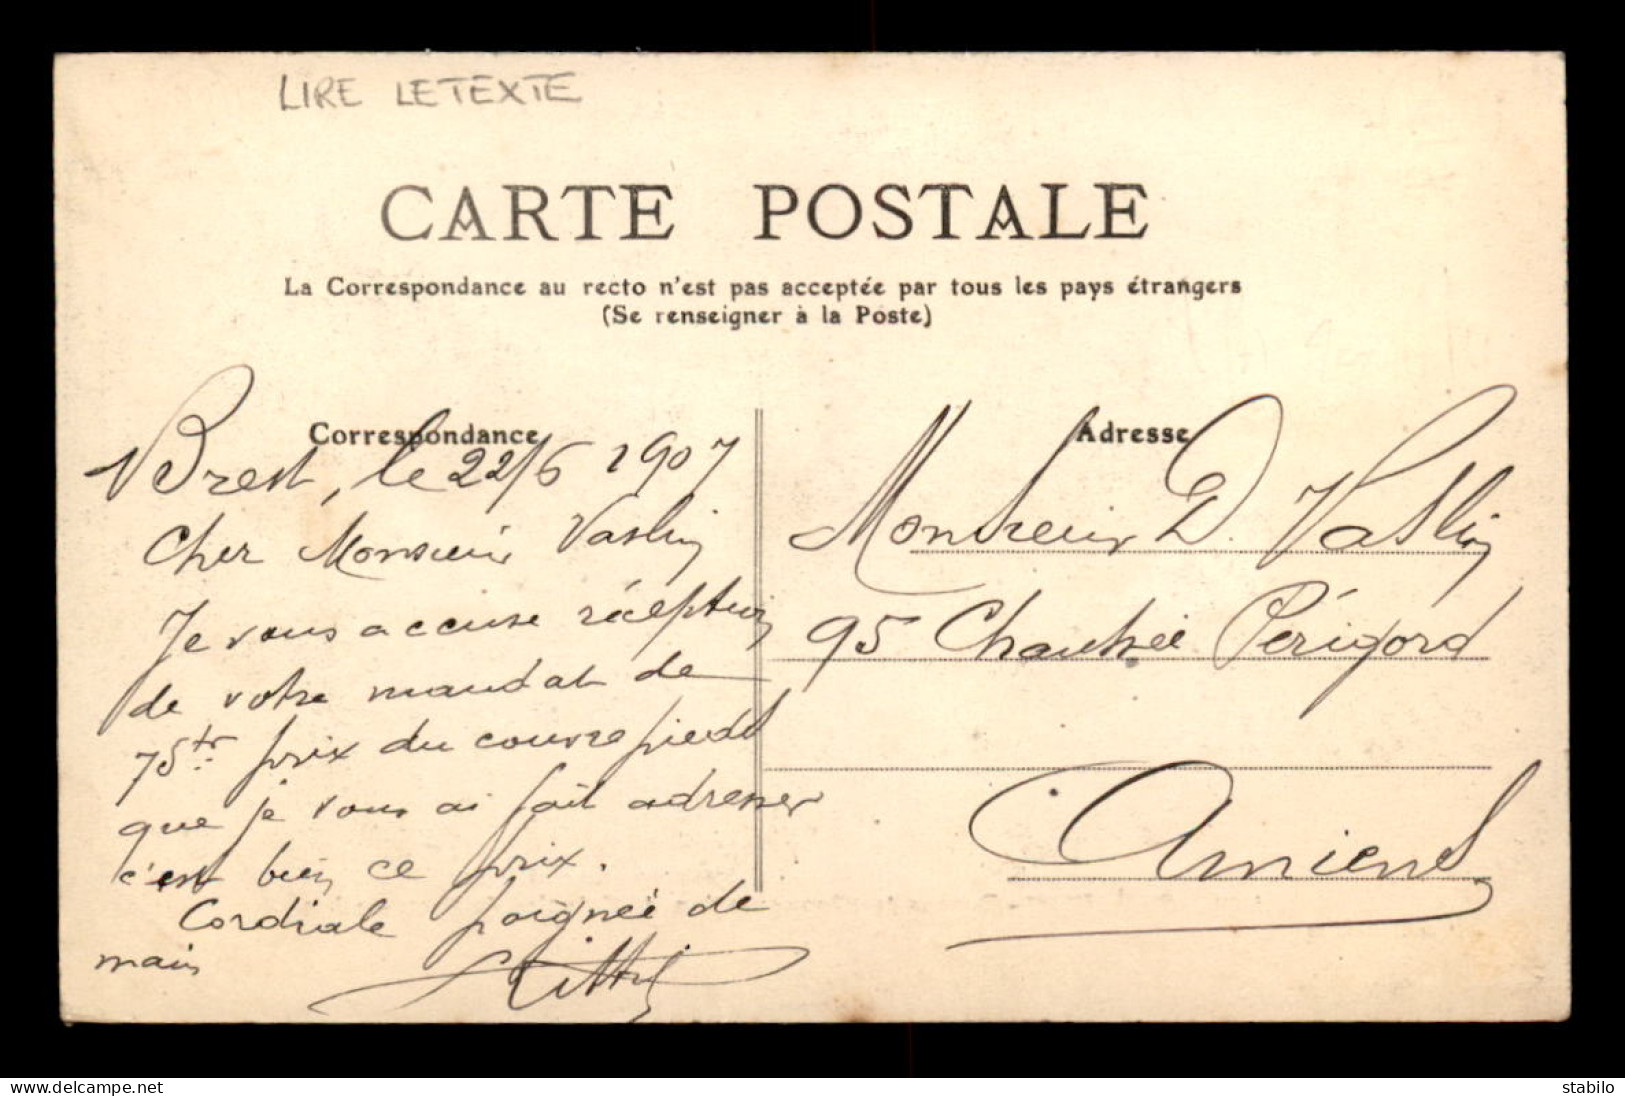 LIRE LE TEXTE
CARTE POSTALE
La Correspondance au recto n'est pas acceptée par tous les pays étrangers
(Se renseigner à la Poste)
Correspondance
Brest, le 22/6 1907
Cher Monsieur Vaslin
Je vous accuse réception
de votre mandat de
75fr prix du couvre pieds
que je vous ai fait adresser
c'est bien ce prix.
Cordiale poignée de
main
Adresse
Monsieur D. Vaslin
95 Chaussée Périgord
Amiens
www.delcampe.net
stabilo